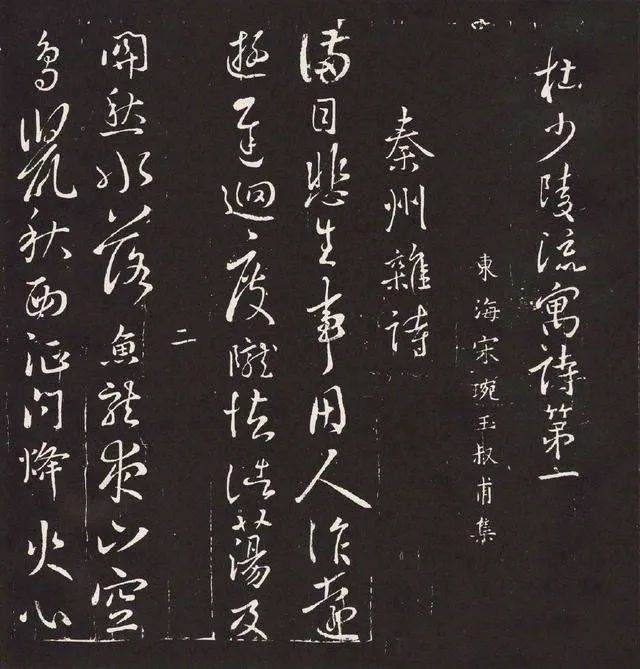 杜少陵流寓詩第一
東海宋琬玉叔甫集
秦州雜詩
滿目悲生事因人作遠
遊遲迴度隴怯浩蕩及
二
關愁水落魚龍夜山空
鳥鼠秋西征問烽火心